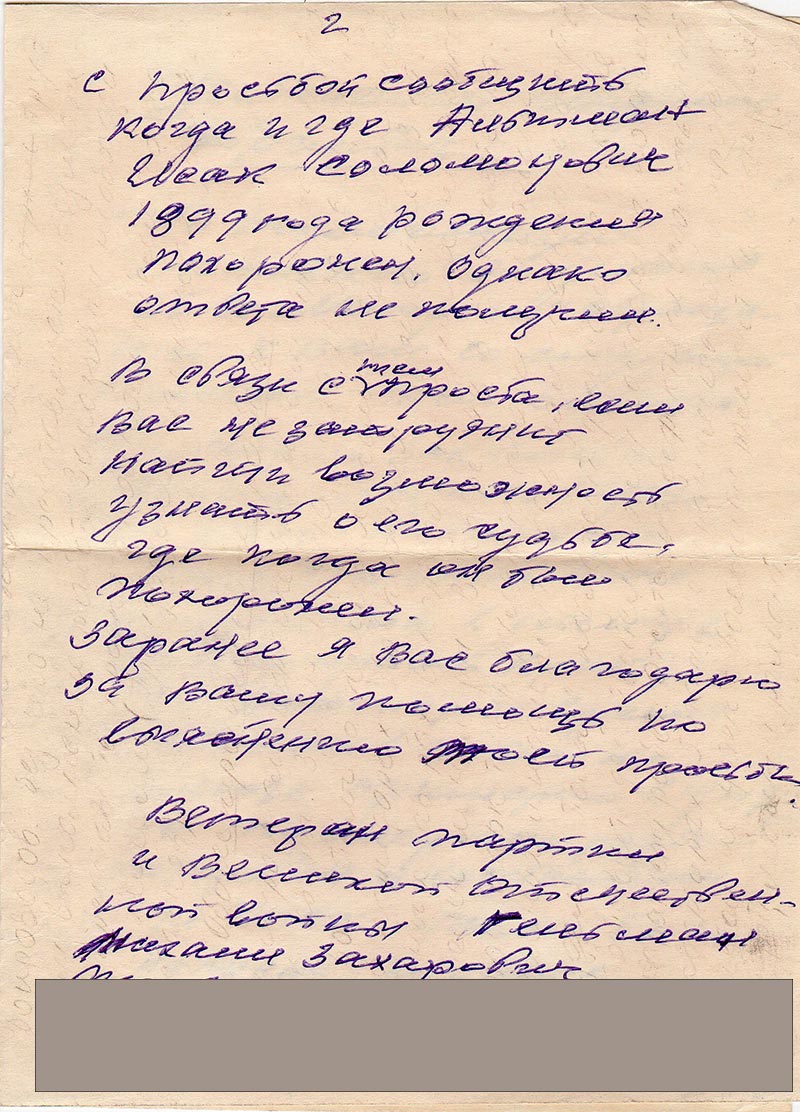 2
с просьбой сообщить
когда и где Альтман
Исаак Соломонович
1899 года рождения
похоронен. Однако
ответа не получил.
В связи с тем проста, если
Вас не затруднит
найти возможность
узнать о его судьбе,
где когда он был
похоронен.
Заранее я Вас благодарю
за Вашу помощь по
выяснению моей просьбы.
Ветеран партии
и Великой Отечествен-
ной войны
Михаил Захарович